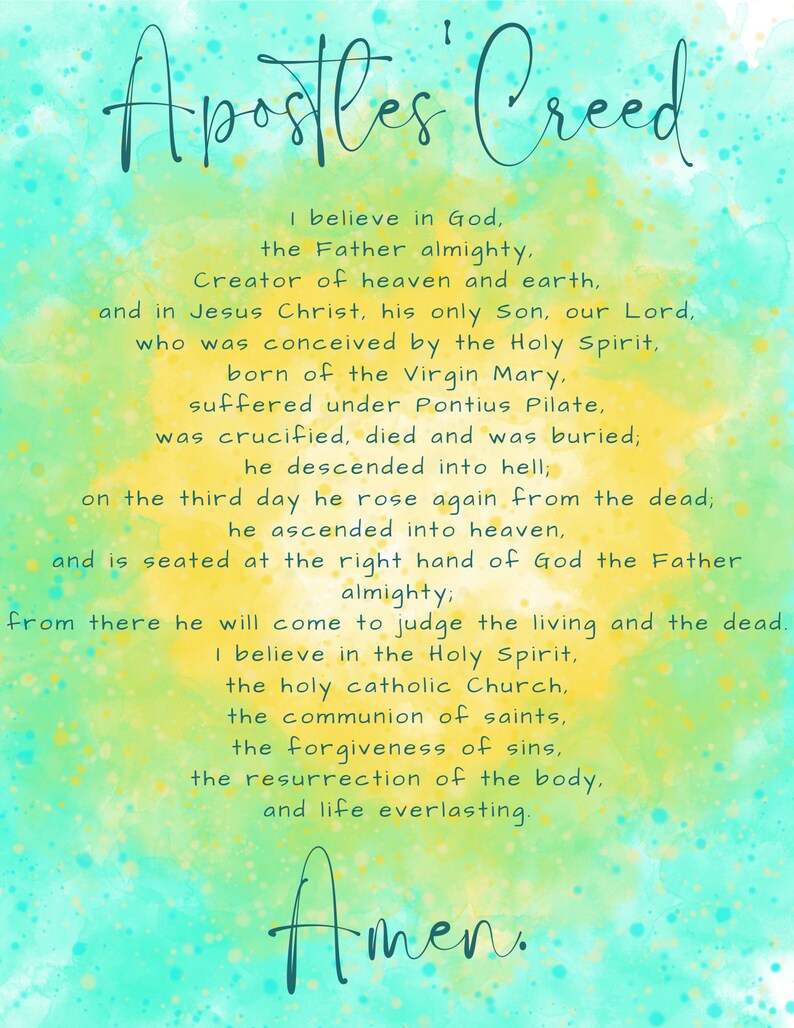 Apostles' Creed
I believe in God,
the Father almighty,
Creator of heaven and earth,
and in Jesus Christ, his only Son, our Lord,
who was conceived by the Holy Spirit,
born of the Virgin Mary,
suffered under Pontius Pilate,
was crucified, died and was buried;
he descended into hell;
on the third day he rose again from the dead;
he ascended into heaven,
and is seated at the right hand of God the Father
almighty;
from there he will come to judge the living and the dead.
I believe in the Holy Spirit,
the holy catholic Church,
the communion of saints,
the forgiveness of sins,
the resurrection of the body,
and life everlasting.
Amen.